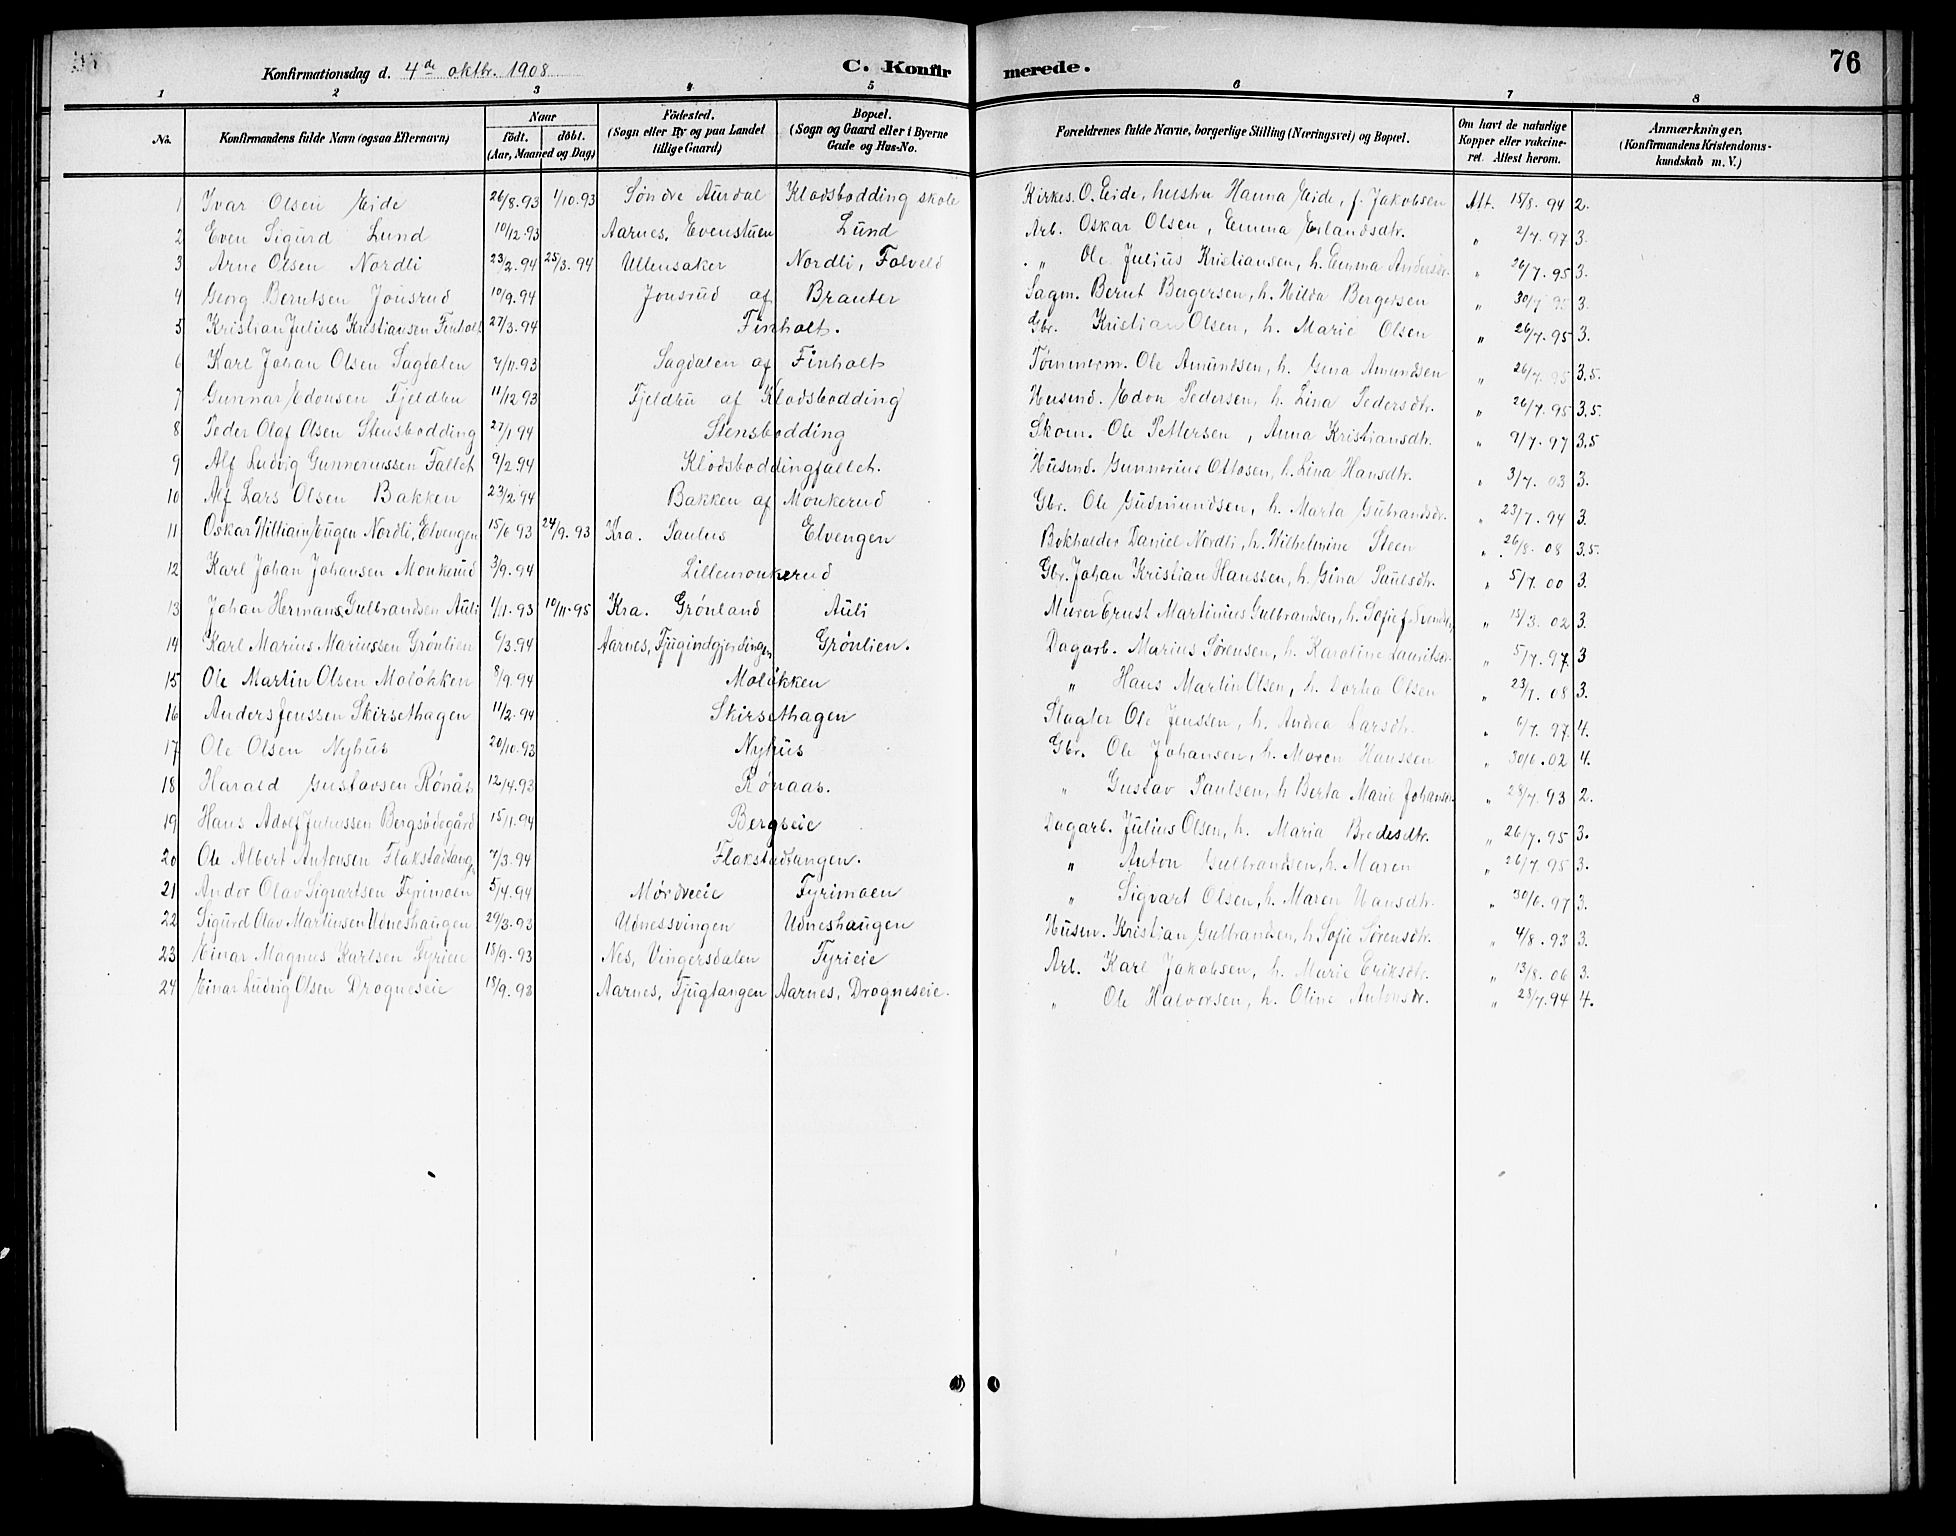 Konfirmationsdag d. 4de oktbr. 1908 C. Konfirmerede. 76
1 2 3 4 5 6 7 8
No. Konfirmandens fulde Navn (ogsaa Efternavn) Naar født. døbt. (Aar, Maaned og Dag) Fødested. (Sogn eller By og paa Landet tillige Gaard) Bopæl. (Sogn og Gaard eller i Byerne Gade og Hus-No. Forældrenes fulde Navne, borgerlige Stilling (Næringsvei) og Bopæl. Om havt de naturlige Kopper eller vakcineret. Attest herom. Anmærkninger. (Konfirmandens Kristendomskundskab m. V.)
1 Ivar Olsen Eide 26/8.93 1/10.93 Søndre Aurdal Klodsbodding skole Kirkes. O. Eide, hustru Hanna Eide, f. Jakobsen Att. 15/8.94 2.
2 Even Sigurd Lund 10/12.93 Aarnes, Evenstuen Lund Arb. Oskar Olsen, Emma Erlandsdtr. " 2/7.97 3.
3 Arne Olsen Nordli 23/2.94 25/3.94 Ullensaker Nordli, Folveld " Ole Julius Kristiansen, h. Emma Andersdr. " 26/7.95 3.
4 Georg Berntsen Jonsrud 10/9.94 Jonsrud af Brauter Sagm. Bernt Bergersen, h. Hilda Bergersen " 30/7 95 3.
5 Kristian Julius Kristiansen Finholt 27/3.94 Finholt. Gbr. Kristian Olsen, h. Marie Olsen " 26/7.95 3.
6 Karl Johan Olsen Sagdalen 7/11.93 Sagdalen af Finholt Tømmerm. Ole Amundsen, h. Gina Amundsen " 26/7.95 3.5.
7 Gunnar Edonsen Fjeldbu 11/12 93 Fjeldbu af Klodsbodding Husmd. Edon Pedersen, h. Lina Pedersdtr. " 26/7.95 3,5.
8 Peder Olaf Olsen Stensbodding 27/1 94 Stensbodding Skom. Ole Pettersen, Anna Kristiansdtr. " 9/7.97 3,5
9 Alf Ludvig Gunneriussen Fallet 9/2.94 Klodsboddingfallet. Husmd. Gunnerius Ottosen, h. Lina Hansdtr. " 3/7.03 3.
10 Alf Lars Olsen Bakken 23/2.94 Bakken af Monkerud Gbr. Ole Gudmundsen, h. Marta Gulbrandsdr. " 23/7.94 3.
11 Oskar William Eugen Nordli, Elvengen 15/6 93 24/9.93 Kra. Paulus Elvengen Bokholder Daniel Nordli, h. Wilhelmine Steen " 26/8.08 3,5.
12 Karl Johan Johansen Monkerud 3/9.94 Lillemonkerud Gbr. Johan Kristian Hanssen, h. Gina Paulsdtr. " 5/7 00 3.
13 Johan Hermans Gulbrandsen Auli 1/11.93 10/11.95 Kra. Grønland Auli Murer Ernst Martinius Gulbrandsen, h. Sofie f. " 15/3.02 3.
14 Karl Marius Mariussen Grønlien 6/3.94 Aarnes, Grønlien. Dagarb. Marius Sørensen, h. Karoline Lauritsdr. " 5/7.97 3
15 Ole Martin Olsen Moløkken 8/9.94 Moløkken " Hans Martin Olsen, h. Dortea Olsen " 23/7.08 3.
16 Anders Jenssen Skirsethagen 11/2.94 Skirsethagen Slagter Ole Jenssen, h. Andrea Larsdtr. " 6/7.97 4.
17 Ole Olsen Nyhus 20/10.93 Nyhus Gbr. Ole Johansen, h. Maren Hanssen " 30/6.02 4.
18 Harald Gustavsen Rønås 12/4.93 Rønaas. " Gustav Paulsen, h Berta Marie Johansdr. " 28/7.93 2.
19 Hans Adolf Juliussen Bergsødegård 15/1.94 Bergseie Dagarb. Julius Olsen, h. Maria Bredesdtr. " 26/7.95 3.
20 Ole Albert Antonsen Flakstadtangen 7/3.94 Flakstadtangen. " Anton Gulbrandsen, h. Maren " 26/7.95 3.
21 Andor Olav Sigvartsen Fyrimoen 5/4.94 Mørdreeie Fyrimoen " Sigvart Olsen, h. Maren Hansdtr. " 30/6.97 3.
22 Sigurd Olav Martinsen Udneshaugen 29/3.93 Udnessvingen Udneshaugen Husm. Kristian Gulbrandsen, h. Sofie Sørensdtr. " 4/8.93 3.
23 Einar Magnus Karlsen Fyrieie 18/9.93 Nes, Vingersdalen Fyrieie Arb. Karl Jakobsen, h. Marie Eriksdtr. " 13/8.06 3.
24 Einar Ludvig Olsen Drogneseie 18/9.93 Aarnes, Fjugtangen Aarnes, Drogneseie. " Ole Halvorsen, h. Oline Antonsdr. " 28/7.94 4.